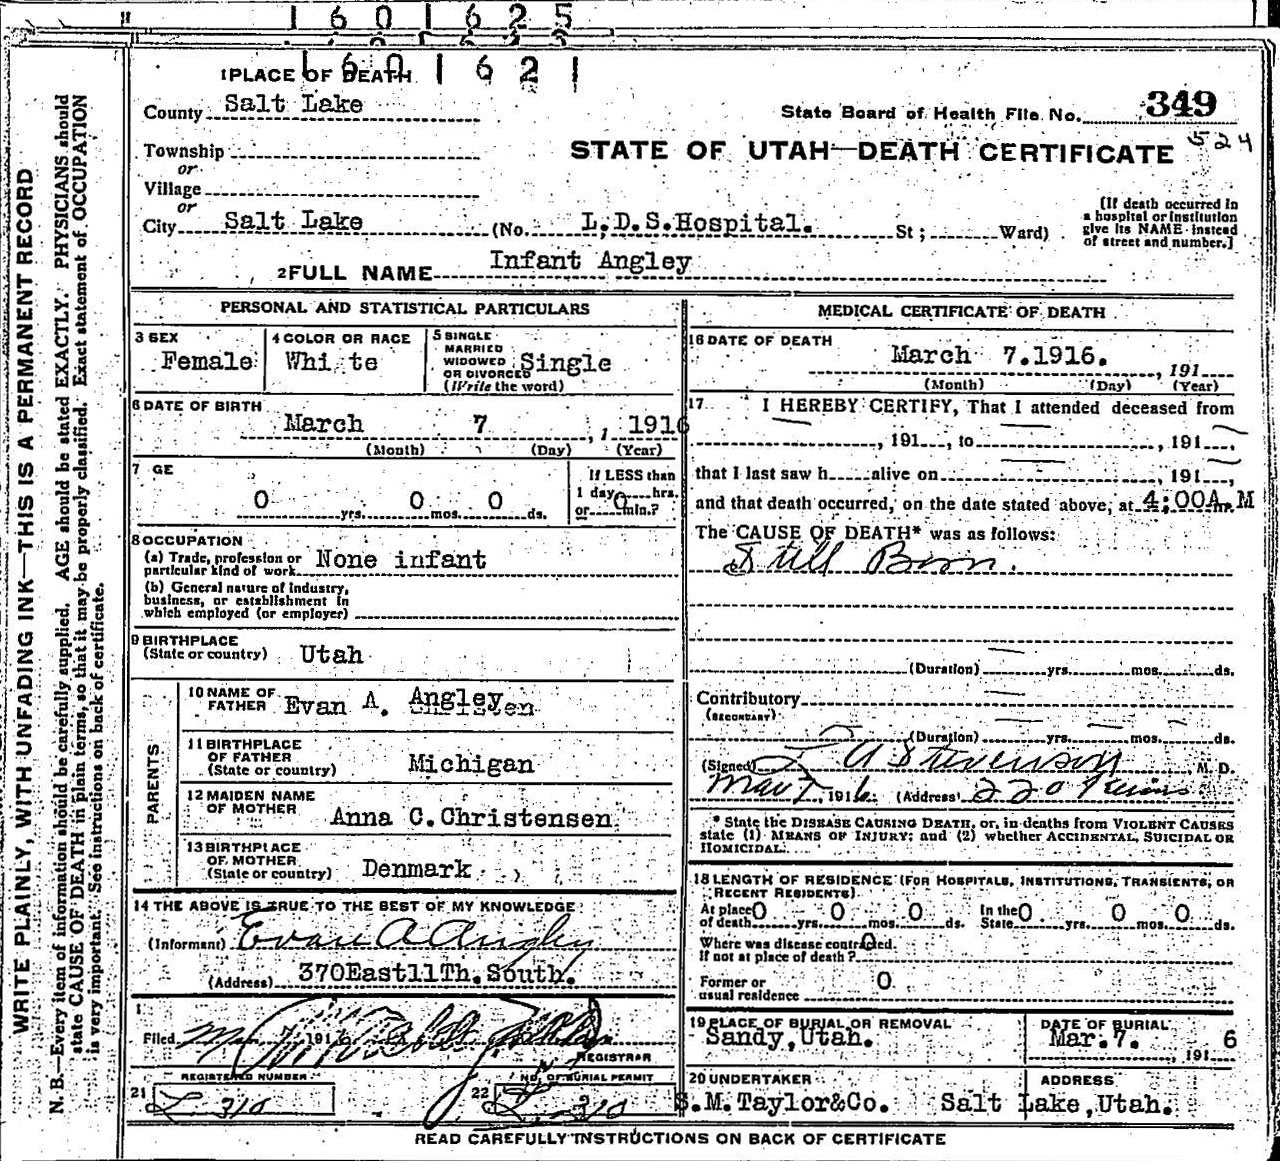 1601625
1601621
1 PLACE OF DEATH
County Salt Lake
State Board of Health File No. 349
524
STATE OF UTAH—DEATH CERTIFICATE
Township
or
Village
or
City Salt Lake (No. L.D.S.Hospital. St; Ward)
[If death occurred in
a hospital or institution
give its NAME instead
of street and number.]
2 FULL NAME Infant Angley
PERSONAL AND STATISTICAL PARTICULARS
3 SEX
Female
4 COLOR OR RACE
White
5 SINGLE
MARRIED
WIDOWED
OR DIVORCED Single
(Write the word)
6 DATE OF BIRTH
March 7 , 1916
(Month) (Day) (Year)
7 GE
0 yrs. 0 mos. 0 ds.
If LESS than
1 day hrs.
or 0 min.?
8 OCCUPATION
(a) Trade, profession or
particular kind of work None infant
(b) General nature of industry,
business, or establishment in
which employed (or employer)
9 BIRTHPLACE
(State or country) Utah
PARENTS
10 NAME OF
FATHER Evan A. Angley
11 BIRTHPLACE
OF FATHER
(State or country) Michigan
12 MAIDEN NAME
OF MOTHER Anna C.Christensen
13 BIRTHPLACE
OF MOTHER
(State or country) Denmark
14 THE ABOVE IS TRUE TO THE BEST OF MY KNOWLEDGE
(Informant) Evan A Angley
(Address) 370East11Th.South.
Filed 7 1916
REGISTRAR
REGISTERED NUMBER
21 L-310
NO. OF BURIAL PERMIT
22 L-310
MEDICAL CERTIFICATE OF DEATH
16 DATE OF DEATH
March 7.1916. , 191
(Month) (Day) (Year)
17 I HEREBY CERTIFY, That I attended deceased from
, 191 , to , 191 ,
that I last saw h alive on , 191 ,
and that death occurred, on the date stated above, at 4:00A.M
The CAUSE OF DEATH* was as follows:
Still Born.
(Duration) yrs. mos. ds.
Contributory
(SECONDARY)
(Duration) yrs. mos. ds.
(Signed) A Stevenson , M. D.
Mar 7, 1916 (Address) 220
* State the DISEASE CAUSING DEATH, or, in deaths from VIOLENT CAUSES
state (1) MEANS OF INJURY; and (2) whether ACCIDENTAL, SUICIDAL OR
HOMICIDAL.
18 LENGTH OF RESIDENCE (FOR HOSPITALS, INSTITUTIONS, TRANSIENTS, OR
RECENT RESIDENTS).
At place of death 0 yrs. 0 mos. 0 ds. In the State 0 yrs. 0 mos. 0 ds.
Where was disease contracted. 0
If not at place of death?
Former or
usual residence 0
19 PLACE OF BURIAL OR REMOVAL
Sandy,Utah.
DATE OF BURIAL
Mar.7. , 191 6
20 UNDERTAKER
S.M.Taylor&Co.
ADDRESS
Salt Lake,Utah.
READ CAREFULLY INSTRUCTIONS ON BACK OF CERTIFICATE
WRITE PLAINLY, WITH UNFADING INK—THIS IS A PERMANENT RECORD
N. B.—Every item of information should be carefully supplied. AGE should be stated EXACTLY. PHYSICIANS should
state CAUSE OF DEATH in plain terms, so that it may be properly classified. Exact statement of OCCUPATION
is very important. See instructions on back of certificate.